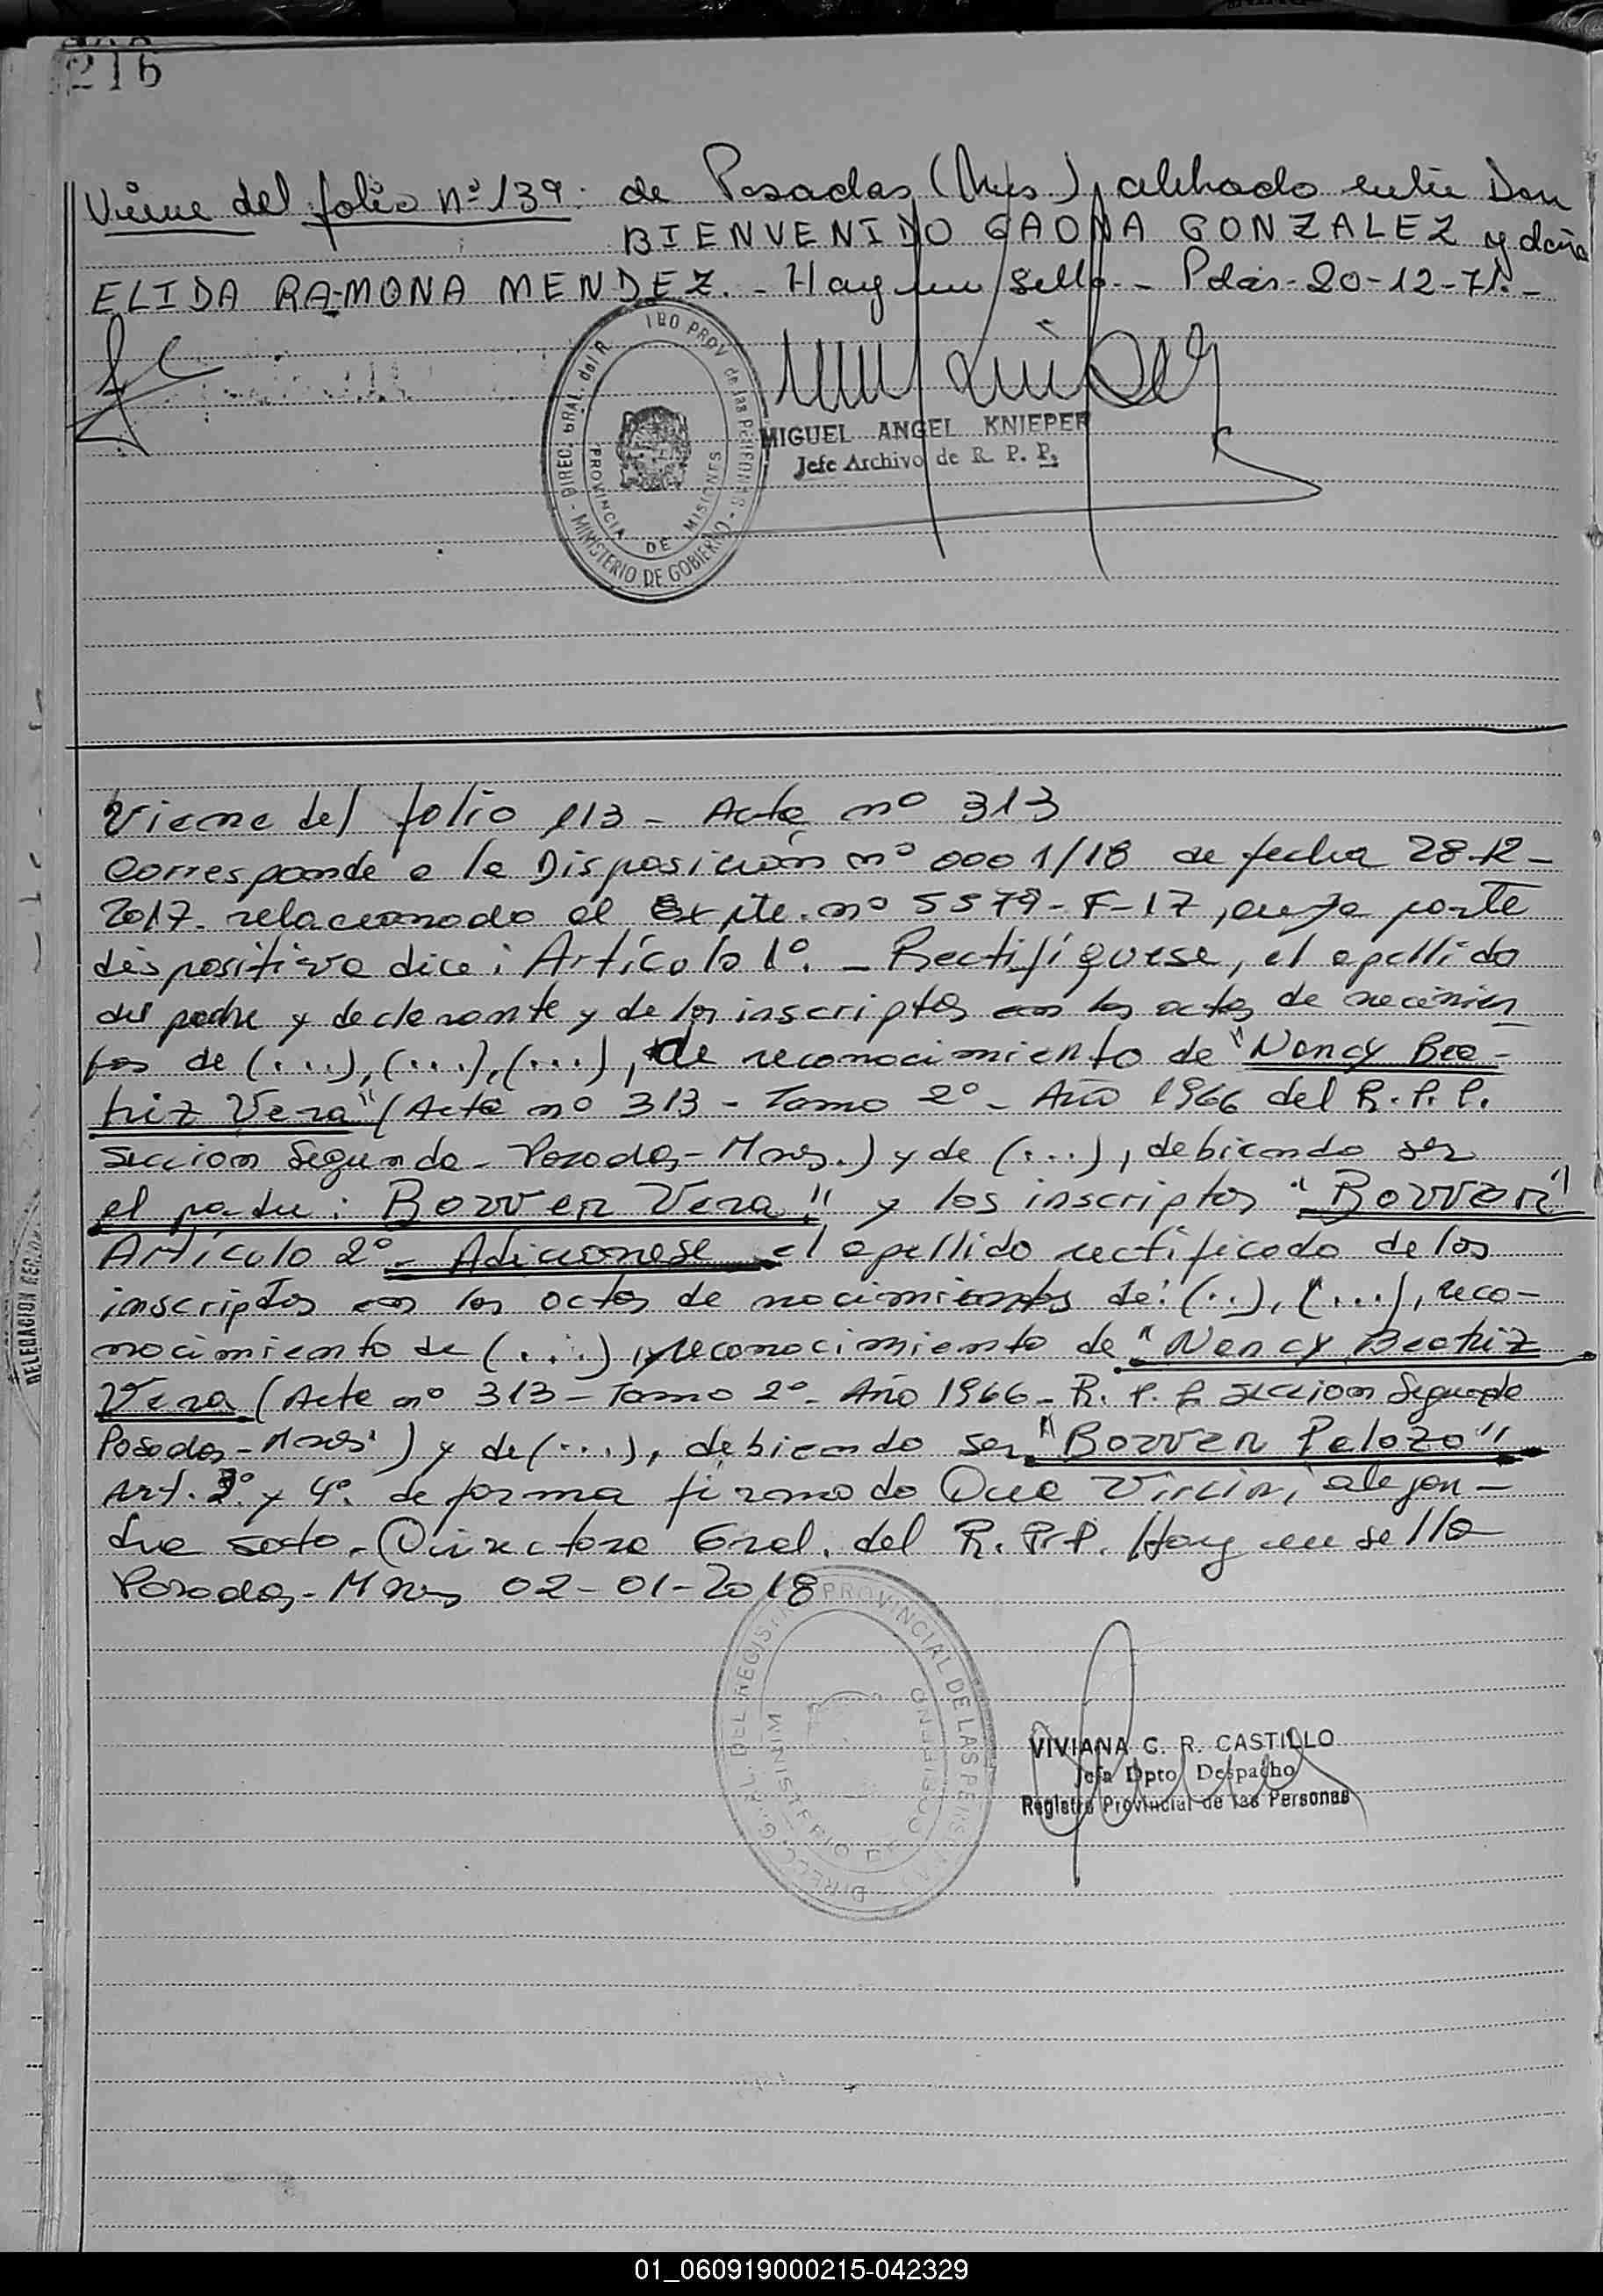 216
Viene del folio nº 139. de Posadas (Mnes), celebrado entre Don
BIENVENIDO GAONA GONZALEZ y doña
ELIDA RAMONA MENDEZ. - Hay un sello. - Pdas - 20-12-71. -
DIREC. GRAL. del R PROV de las PERSONAS - MINISTERIO DE GOBIERNO -
PROVINCIA DE MISIONES
MIGUEL ANGEL KNIEPER
Jefe Archivo de R. P. P.
Viene del folio 113 - Acta nº 313
Corresponde a la Disposición nº 0001/18 de fecha 28-12-
2017. relacionado al Expte. nº 5579-F-17, cuya parte
dispositiva dice: Artículo 1º. - Rectifíquese, el apellido
del padre y declarante y de los inscriptos en las actas de nacimien
tos de (...), (...), (...), de reconocimiento de "Nancy Bea-
triz Vera" (Acta nº 313 - Tomo 2º - Año 1966 del R. P. P.
Sección Segunda - Posadas - Mnes.) y de (...), debiendo ser
el padre: Bowen Vera" y los inscriptos "Bowen"
Artículo 2º - Adicionese el apellido rectificado de los
inscriptos en las actas de nacimientos de: (..), (...), reco-
nocimiento de (...), reconocimiento de "Nancy Beatriz
Vera (Acta nº 313 - Tomo 2º - Año 1966 - R. P. P. Seccion Segunda
Posadas - Mnes.) y de (...), debiendo ser "Bowen Pelozo"
Art. 3º. y 4º. de forma firmado Dra alejan-
dra soto. Directora Gral. del R. P. P. Hay un sello
Posadas - Mnes 02-01-2018
DIRECC. GRAL. DEL REGISTRO PROVINCIAL DE LAS PERSONAS
MINISTERIO DE GOBIERNO
VIVIANA C. R. CASTILLO
Jefa Dpto Despacho
Registro Provincial de las Personas
DELEGACION
01_060919000215-042329